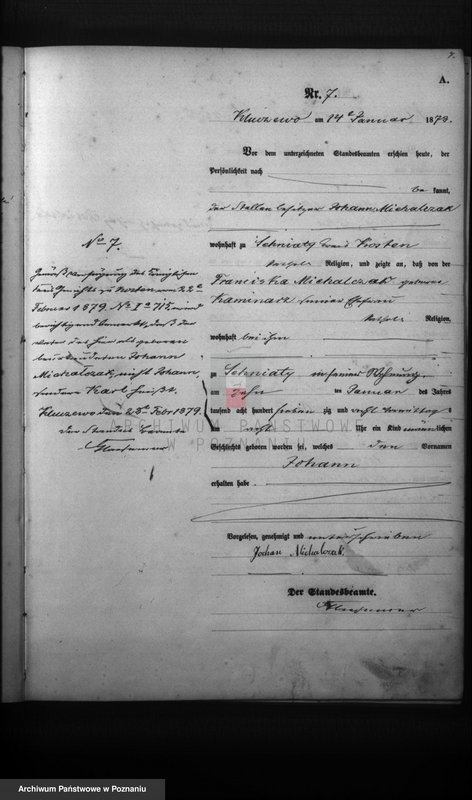 7.
A.
Nr. 7.
Kluczewo am 14 ten Januar 1879.
Vor dem unterzeichneten Standesbeamten erschien heute, der
Persönlichkeit nach
be kannt,
der Stellenbesitzer Johann Michalczak
wohnhaft zu Schniaty Kreis Kosten
kathol. Religion, und zeigte an, daß von der
Franciska Michalczak geborene
Kaminark seiner Ehefrau
kathol. Religion,
wohnhaft bei ihm
zu Schniaty in seiner Wohnung
am zehn ten Januar des Jahres
tausend acht hundert sieben zig und Vormittags
um Uhr ein Kind männlichen
Geschlechts geboren worden sei, welches den Vornamen
Johann
erhalten habe
Vorgelesen, genehmigt und unterschrieben
Johan Michalczak.
Der Standesbeamte.
No 7.
Februar 1879 No
berichtigend bemerkt, daß der
Vater des hier
beurkundeten Johann
Michalczak, nicht Johann,
sondern Karl heißt.
Kluczewo den 25 ten Febr 1879.
Der Standesbeamte
ARCHIWUM PAŃSTWOWE
W POZNANIU
Archiwum Państwowe w Poznaniu